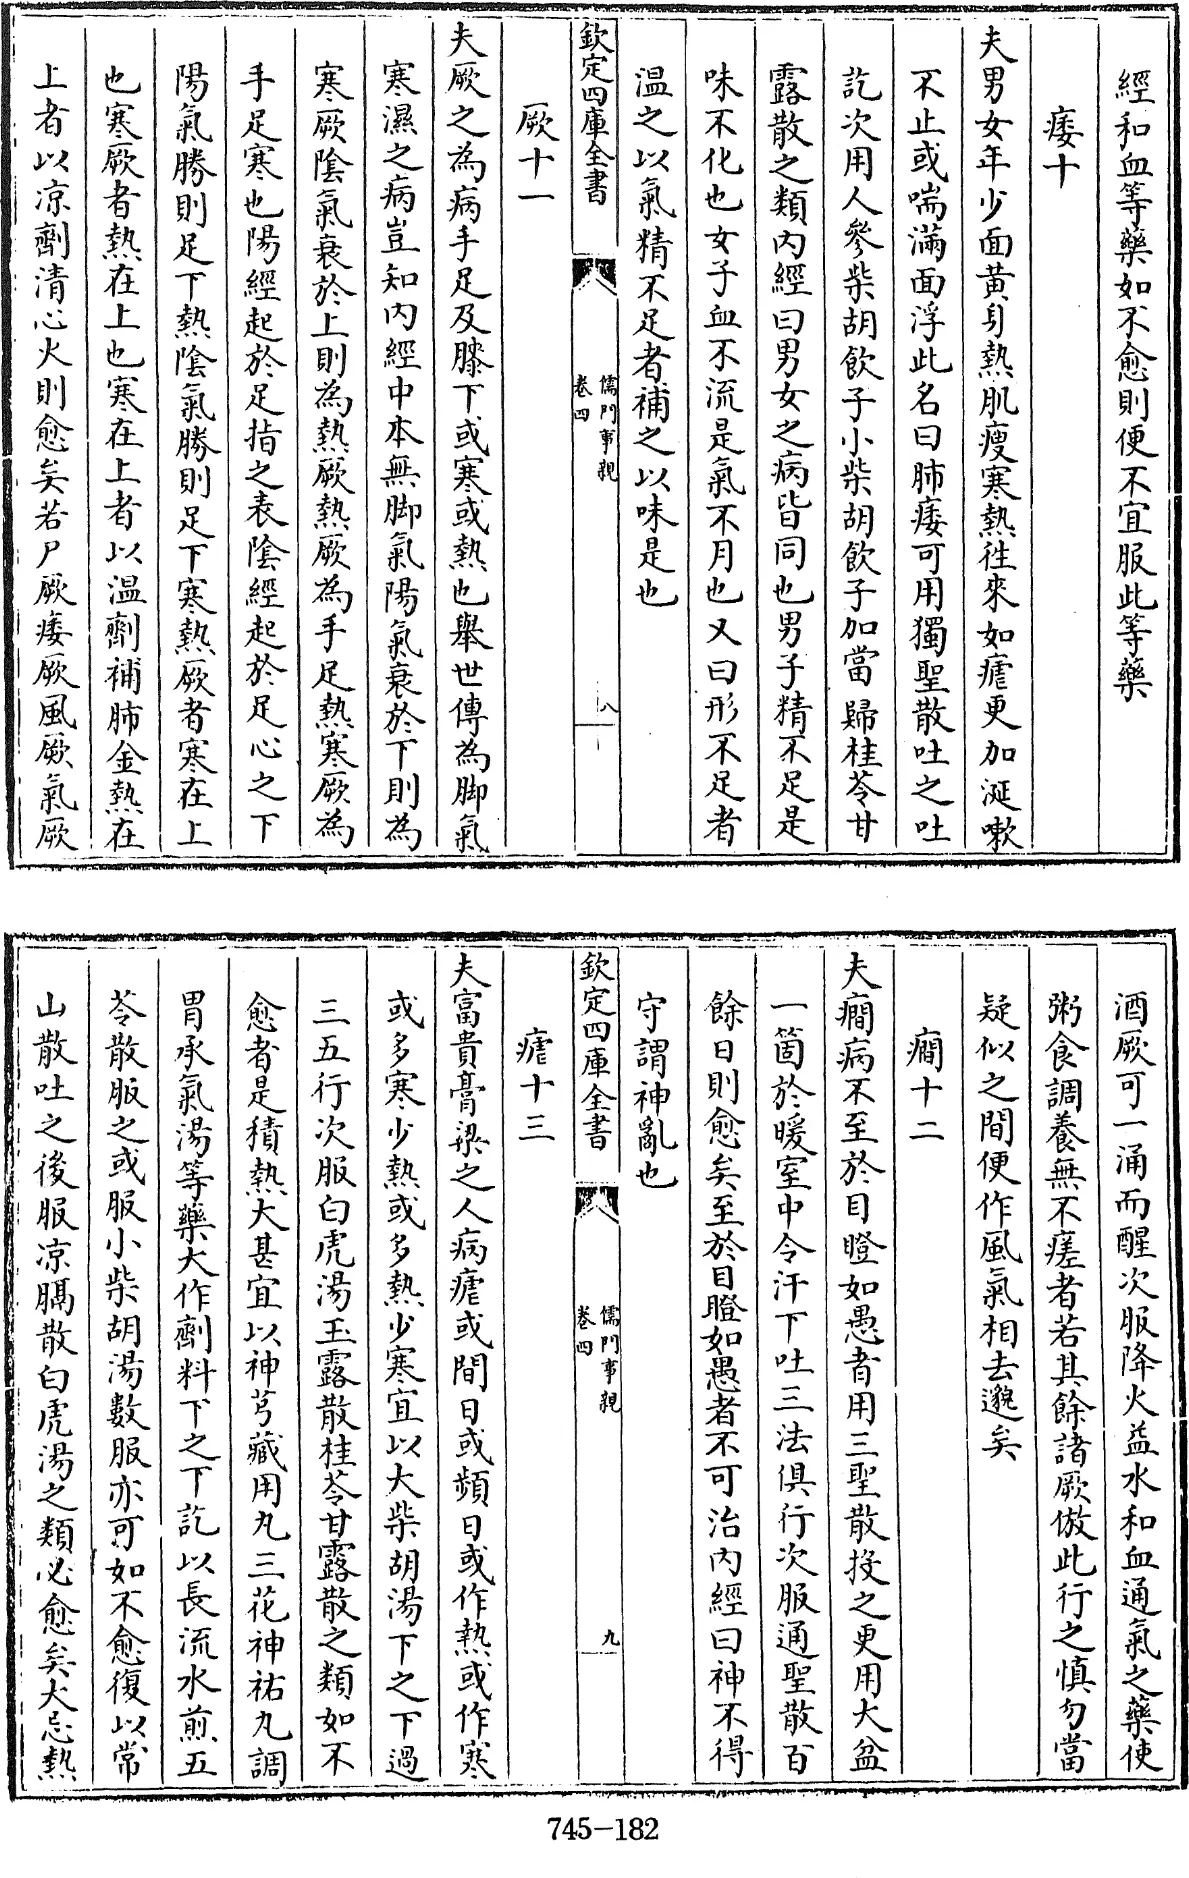 經和血等藥如不愈則便不宜服此等藥
痿十
夫男女年少面黄身熱肌瘦寒熱徃來如瘧更加涎嗽
不止或喘滿面浮此名曰肺痿可用獨聖散吐之吐
訖次用人參柴胡飲子小柴胡飲子加當歸桂苓甘
露散之類内經曰男女之病皆同也男子精不足是
味不化也女子血不流是氣不月也又曰形不足者
温之以氣精不足者補之以味是也
欽定四庫全書
儒門事親
卷四
八
厥十一
夫厥之為病手足及膝下或寒或熱也舉世傳為脚氣
寒濕之病豈知内經中本無脚氣陽氣衰於下則為
寒厥陰氣衰於上則為熱厥熱厥為手足熱寒厥為
手足寒也陽經起於足指之表陰經起於足心之下
陽氣勝則足下熱陰氣勝則足下寒熱厥者寒在上
也寒厥者熱在上也寒在上者以温劑補肺金熱在
上者以凉劑清心火則愈矣若尸厥痿厥風厥氣厥
酒厥可一涌而醒次服降火益水和血通氣之藥使
粥食調養無不瘥者若其餘諸厥倣此行之慎勿當
疑似之間便作風氣相去邈矣
癎十二
夫癎病不至於目瞪如愚者用三聖散投之更用大盆
一箇於暖室中令汗下吐三法俱行次服通聖散百
餘日則愈矣至於目瞪如愚者不可治内經曰神不得
守謂神亂也
欽定四庫全書
儒門事親
卷四
九
瘧十三
夫富貴膏粱之人病瘧或間日或頻日或作熱或作寒
或多寒少熱或多熱少寒宜以大柴胡湯下之下過
三五行次服白虎湯玉露散桂苓甘露散之類如不
愈者是積熱大甚宜以神芎藏用丸三花神祐丸調
胃承氣湯等藥大作劑料下之下訖以長流水煎五
苓散服之或服小柴胡湯數服亦可如不愈復以常
山散吐之後服凉膈散白虎湯之類必愈矣大忌熱
745-182